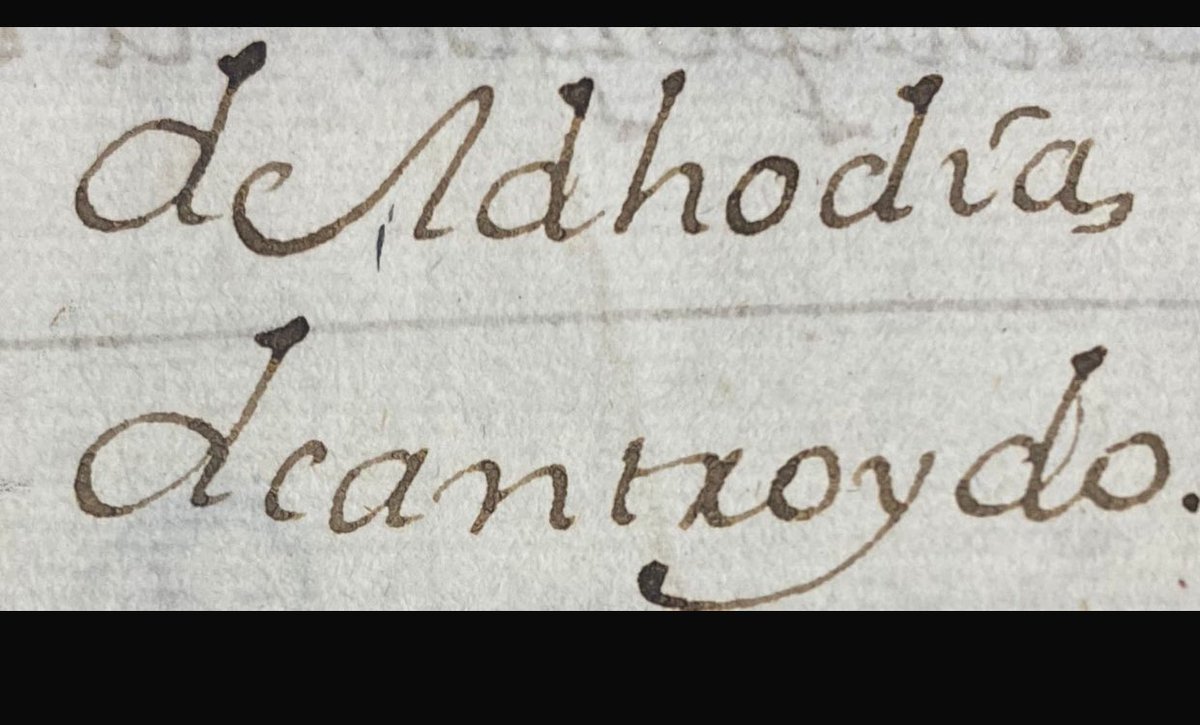 del dho día,
de antroydo.